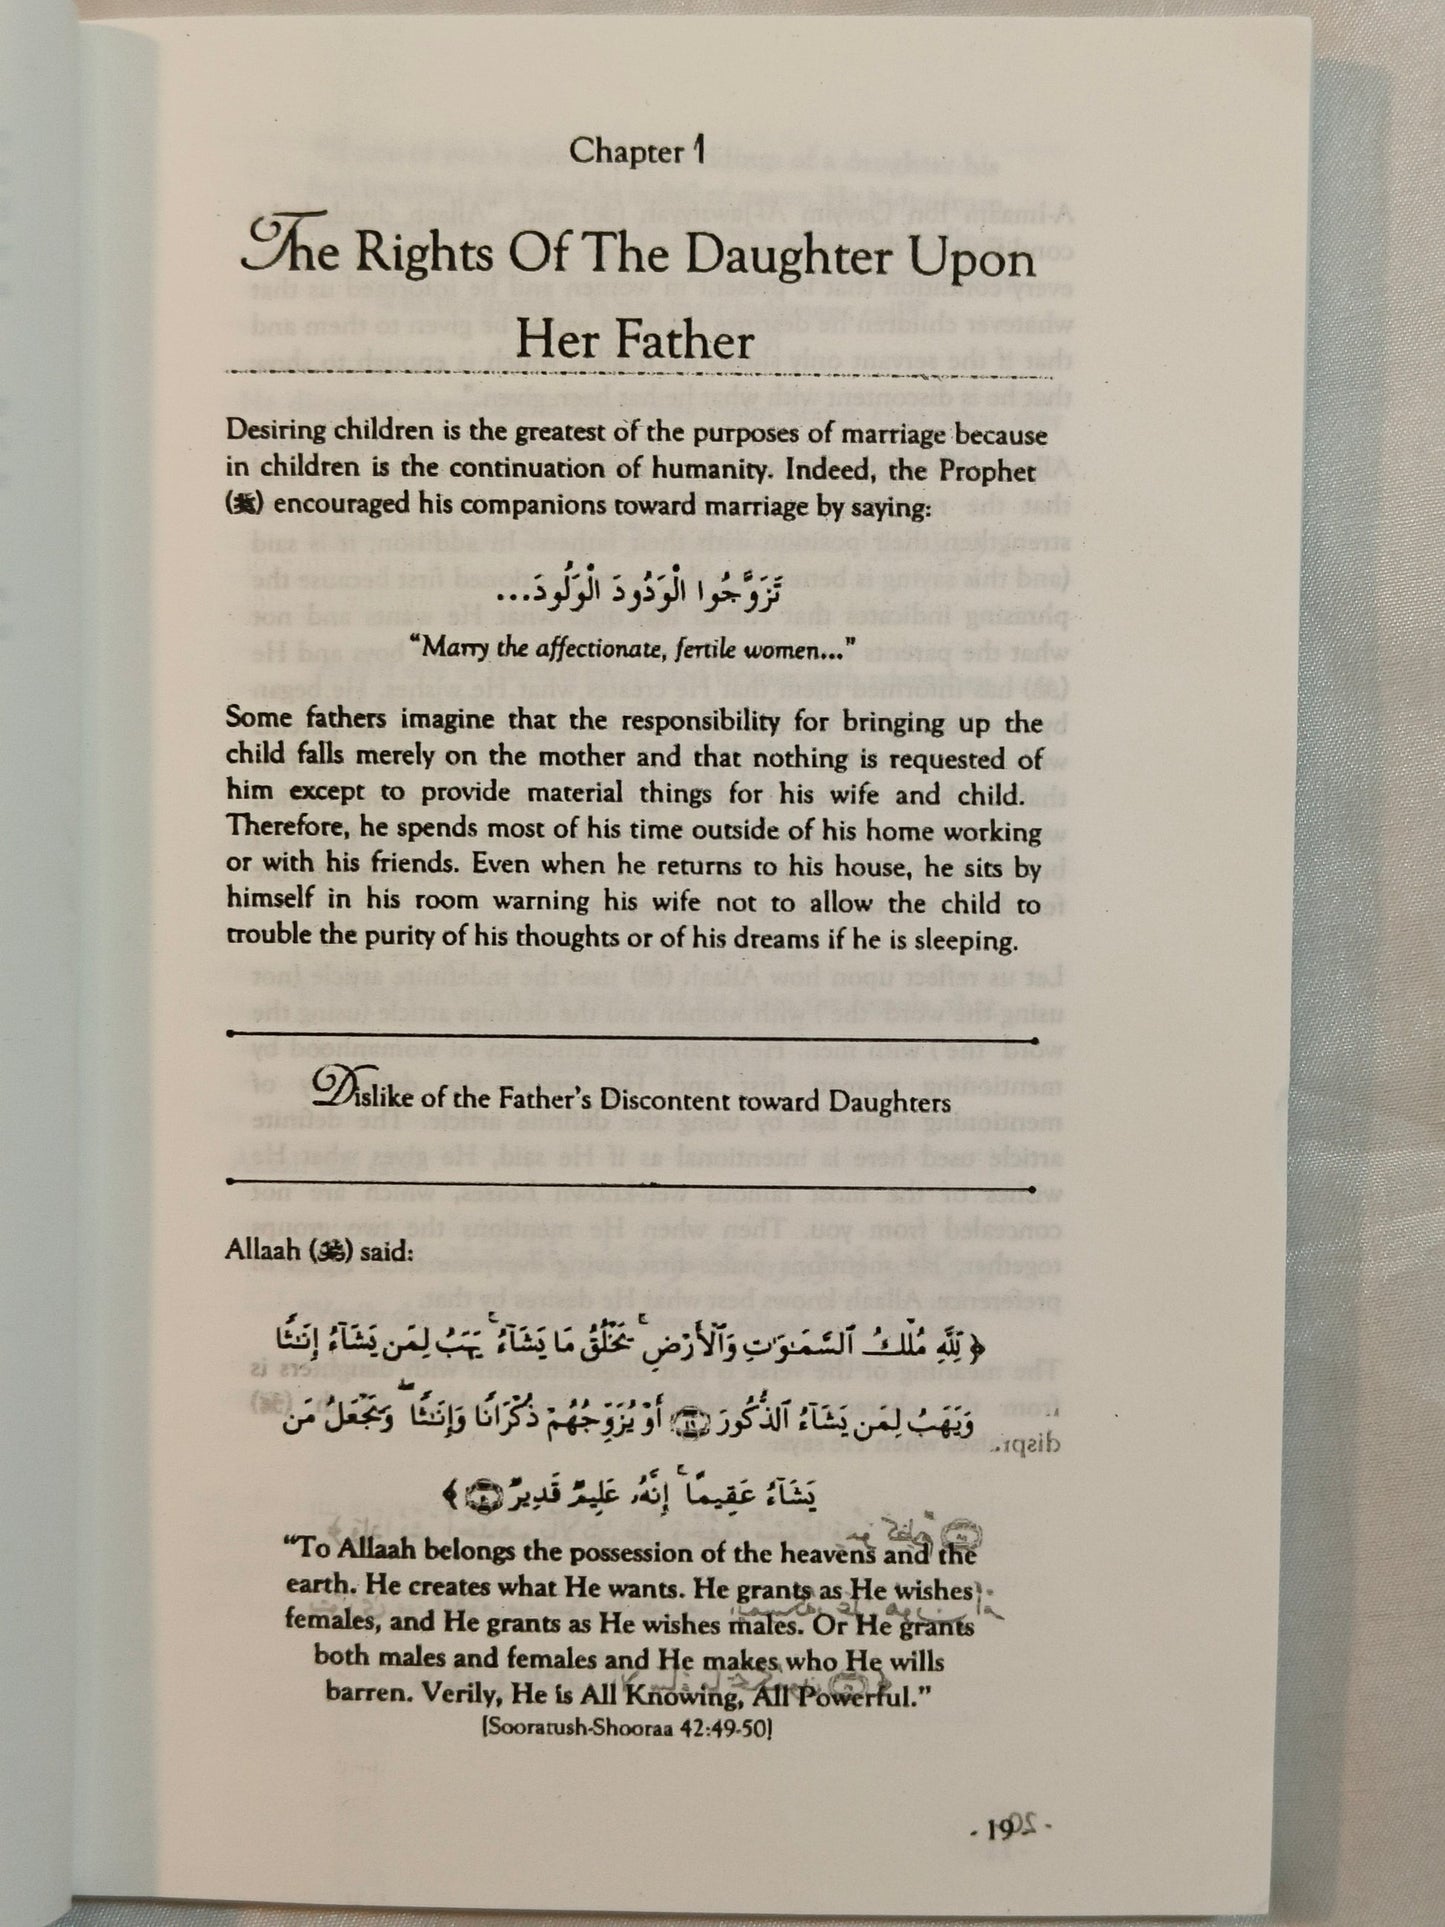 Chapter 1
The Rights Of The Daughter Upon
Her Father
Desiring children is the greatest of the purposes of marriage because
in children is the continuation of humanity. Indeed, the Prophet
(ﷺ) encouraged his companions toward marriage by saying:
تَزَوَّجُوا الْوَدُودَ الْوَلُودَ...
“Marry the affectionate, fertile women...”
Some fathers imagine that the responsibility for bringing up the
child falls merely on the mother and that nothing is requested of
him except to provide material things for his wife and child.
Therefore, he spends most of his time outside of his home working
or with his friends. Even when he returns to his house, he sits by
himself in his room warning his wife not to allow the child to
trouble the purity of his thoughts or of his dreams if he is sleeping.
Dislike of the Father's Discontent toward Daughters
Allaah () said:
﴿ لِلَّهِ مُلْكُ ٱلسَّمَـٰوَٰتِ وَٱلْأَرْضِ ۚ يَخْلُقُ مَا يَشَآءُ ۚ يَهَبُ لِمَن يَشَآءُ إِنَـٰثًا
وَيَهَبُ لِمَن يَشَآءُ ٱلذُّكُورَ ۝ أَوْ يُزَوِّجُهُمْ ذُكْرَانًا وَإِنَـٰثًا ۖ وَيَجْعَلُ مَن
يَشَآءُ عَقِيمًا ۚ إِنَّهُۥ عَلِيمٌ قَدِيرٌ ۝ ﴾
“To Allaah belongs the possession of the heavens and the
earth. He creates what He wants. He grants as He wishes
females, and He grants as He wishes males. Or He grants
both males and females and He makes who He wills
barren. Verily, He is All Knowing, All Powerful.”
[Sooratush-Shooraa 42:49-50]
- 19